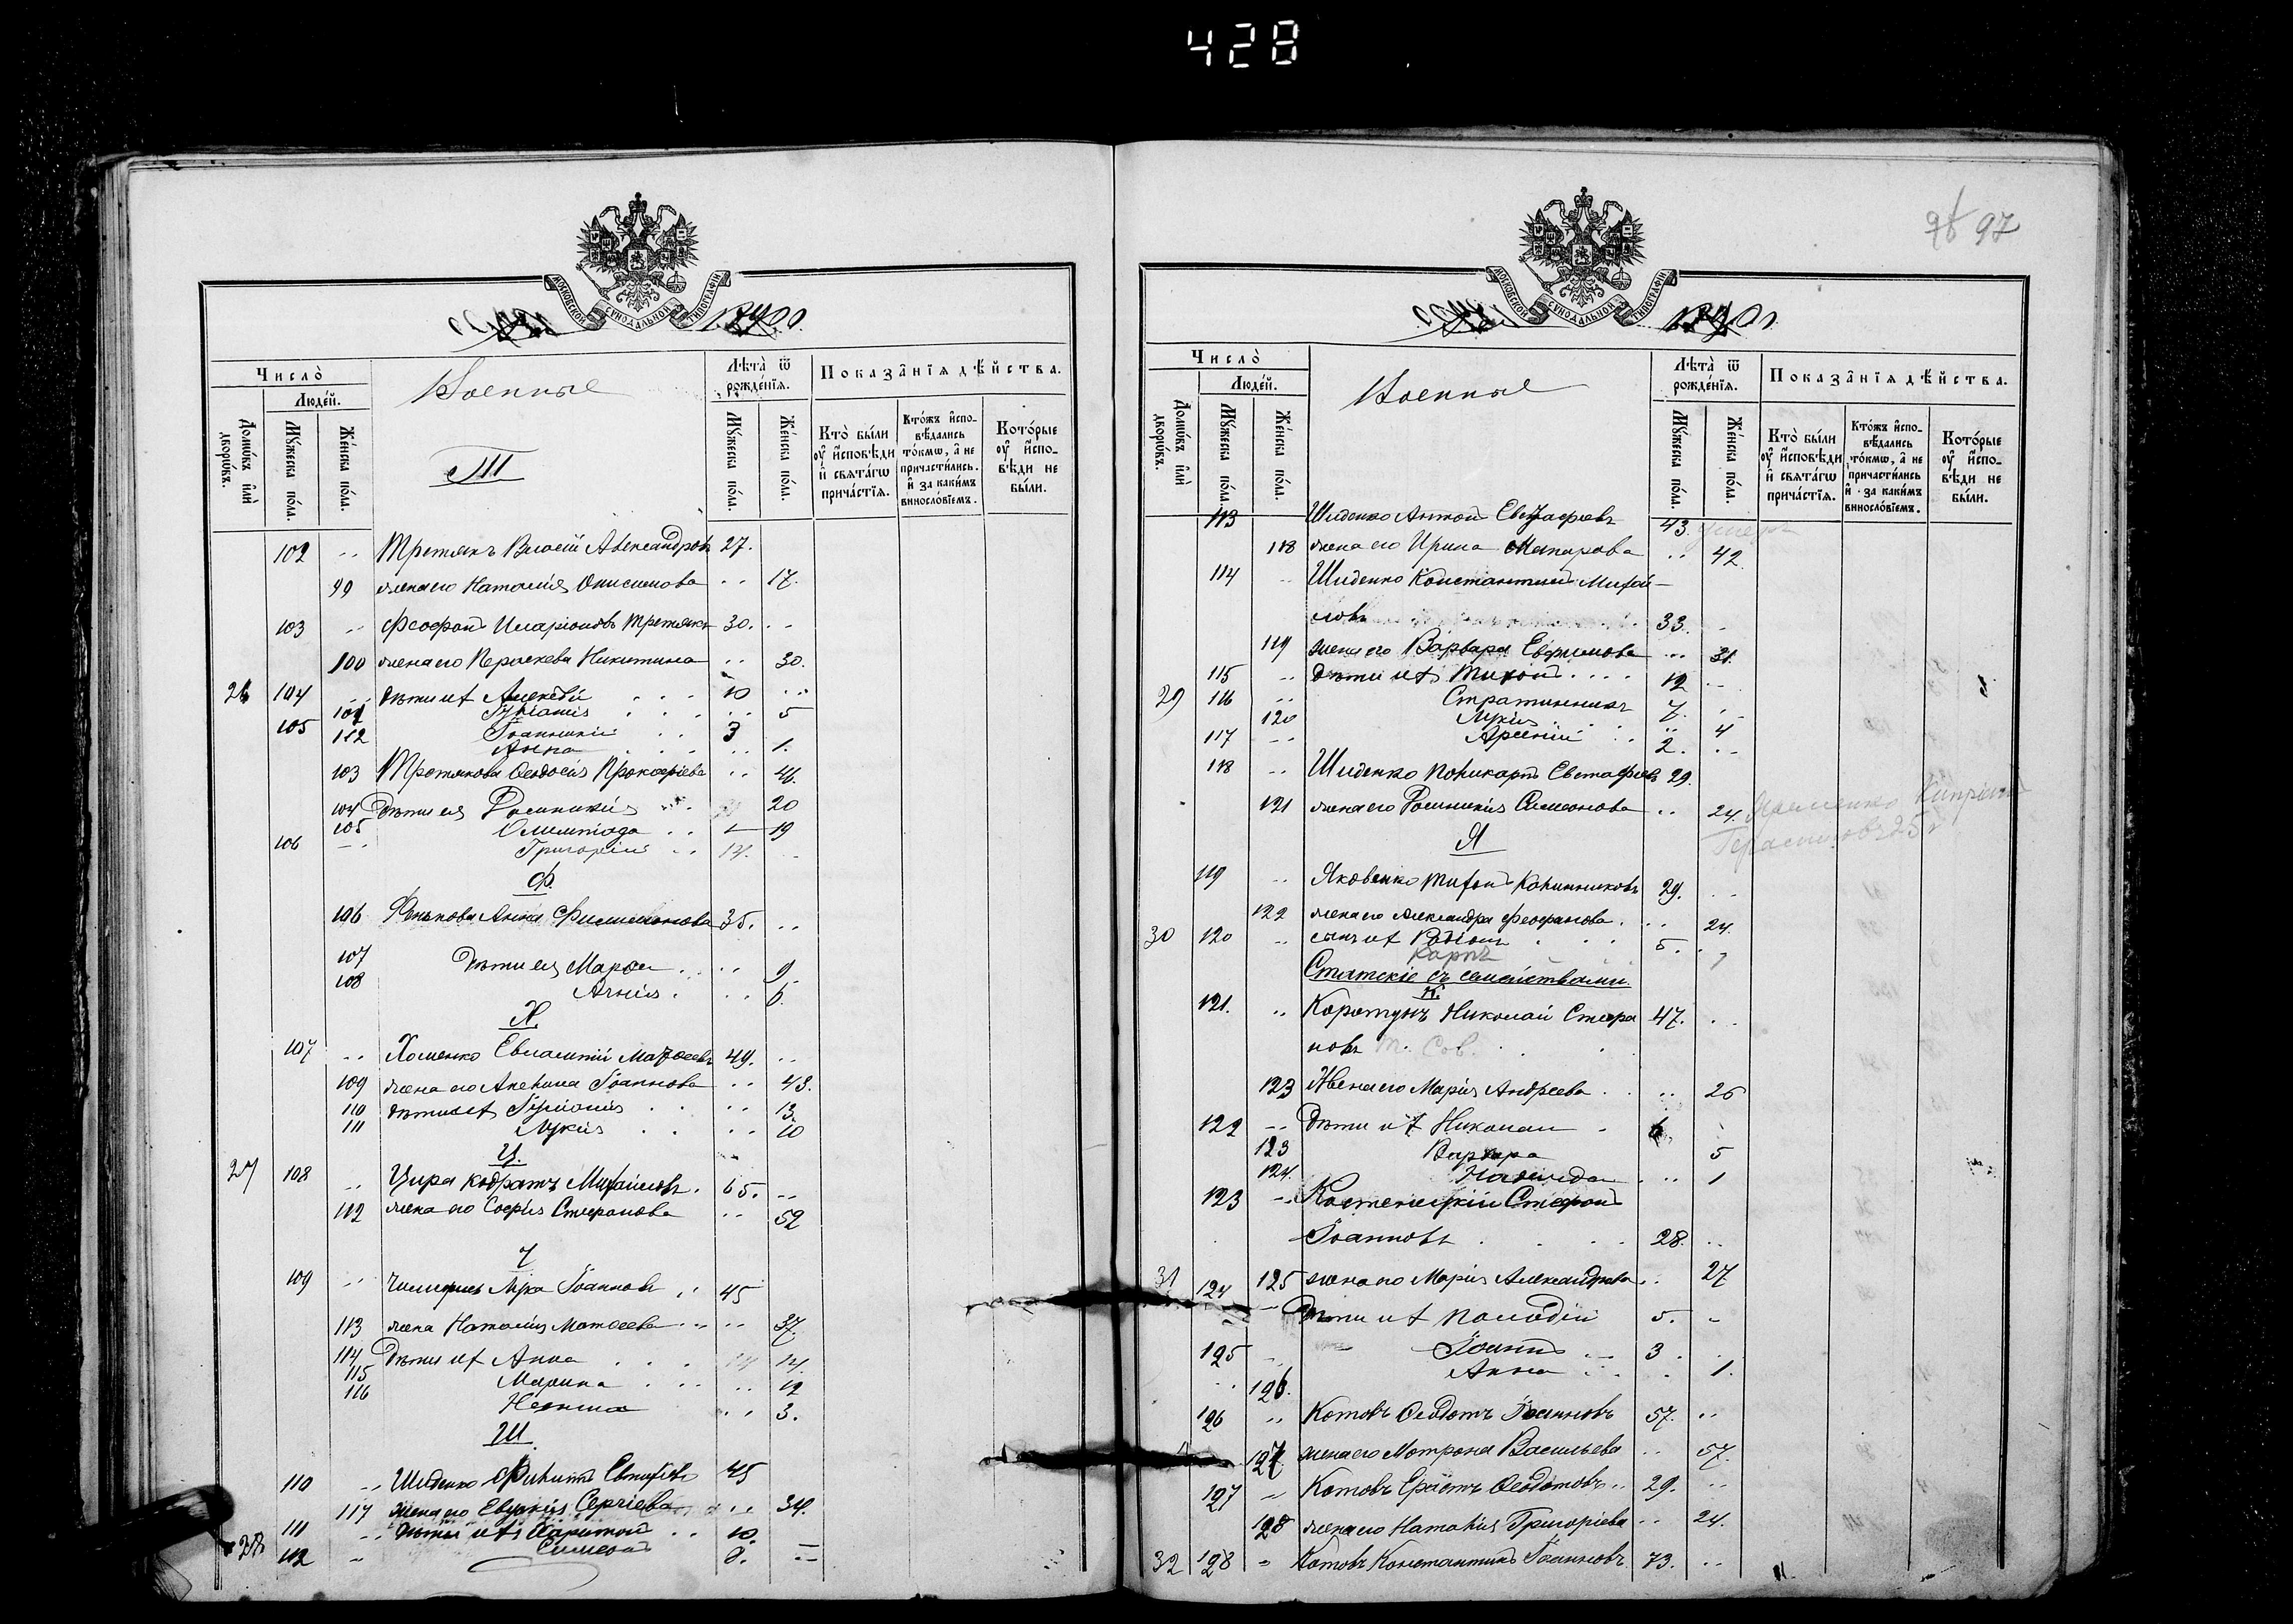 428
97
МОСКОВСКОЙ СѴНОДАЛЬНОЙ ТИПОГРАФІИ
Число̀
Люде́й.
Домѡ́въ и҆лѝ дворѡ́въ.
Мꙋ́жеска по́ла.
Же́нска по́ла.
Военные
Лѣта̀ ѿ рожде́нїѧ.
Мꙋ́жеска по́ла.
Же́нска по́ла.
Показа̑нїѧ дѣ́йства.
Кто̀ бы́ли ᲂу҆ и҆сповѣ́ди и҆ свѧта́гѡ прича́стїѧ.
Кто́жъ и҆сповѣ́дались то́кмѡ, а҆ не причасти́лись. и҆ за каки́мъ винослові́емъ.
Кото́рые ᲂу҆ и҆сповѣ́ди не бы́ли.
Т
102 Третьякъ Власій Александровъ 27.
99 жена его Наталія Онисимова 17.
103 Феофанъ Иларіоновъ Третьякъ 30.
100 жена его Параскева Никитина 30.
26 104 дѣти ихъ Алексѣй 10
101 5
105 Іоанникій 3
112 Анна 1.
103 Третьякова Ѳеодосія Прокофіева 46.
104 Дѣти ея 20
105 Олимпіада 19
106 Григорій 14.
Ф.
106 Анна Филимонова 35.
107 Дѣти ея Марѳа 9
108 Агнія 6.
Х.
107 Хоменко Евлампій 49.
109 жена его Акелина Іоаннова 43.
110 дѣти ихъ 13.
111 Лукія 10
Ц.
27 108 Цира Кодратъ Михайловъ 65.
112 жена его Софія Стефанова 52
Ч
109 Лука Іоанновъ 45
113 жена Наталія Матѳеева 37.
114 Дѣти ихъ Анна 14.
115 Марина 12
116 3.
Ш.
110 Шиденко Филиппъ 45
117 жена его Сергіева 34.
111 дѣти ихъ Харитонъ 10
28 112 Симеонъ
МОСКОВСКОЙ СѴНОДАЛЬНОЙ ТИПОГРАФІИ
Число̀
Люде́й.
Домѡ́въ и҆лѝ дворѡ́въ.
Мꙋ́жеска по́ла.
Же́нска по́ла.
Военные
Лѣта̀ ѿ рожде́нїѧ.
Мꙋ́жеска по́ла.
Же́нска по́ла.
Показа̑нїѧ дѣ́йства.
Кто̀ бы́ли ᲂу҆ и҆сповѣ́ди и҆ свѧта́гѡ прича́стїѧ.
Кто́жъ и҆сповѣ́дались то́кмѡ, а҆ не причасти́лись и҆ за каки́мъ винослові́емъ.
Кото́рые ᲂу҆ и҆сповѣ́ди не бы́ли.
113 Шиденко Антонъ Евстафіевъ 43. умеръ
118 жена его Ирина Макарова 42
114 Шиденко Константинъ Михай-
ловъ 33.
119 жена его Варвара Евфимова 31.
115 дѣти ихъ Тихонъ 12
29 116 Стратонникъ 7.
120 Лукія 4
117 Арсеній 2.
118 Шиденко Поликарпъ Евстафіевъ 29.
121 жена его Симеонова 24. Киріанъ
Герасимовъ 25
Я
119 Яковенко Тихонъ Калинниковъ 29.
122 жена его Александра Феофанова 24.
30 120 сынъ ихъ Родіонъ 5.
Карпъ 1
Статскіе съ семействами.
К.
121. Коротунъ Николай Стефа 47.
новъ
123 Жена его Марія Андреева 26
122 Дѣти ихъ Николай 6
123 Варвара 5
124. Надежда 1
123 Костенецкій Стефанъ
Іоанновъ 28.
31 125 жена его Марія Александрова 27
124 Дѣти ихъ 5.
125 Іоаннъ 3
126. Анна 1.
126 Котовъ Ѳеодотъ Іоанновъ 57.
127 жена его Мотрона Васильева 57.
127 Котовъ Ерастъ Ѳеодотовъ 29.
128 жена его Наталія Григоріева 24.
32 128 Котовъ Константинъ Іоанновъ 73.